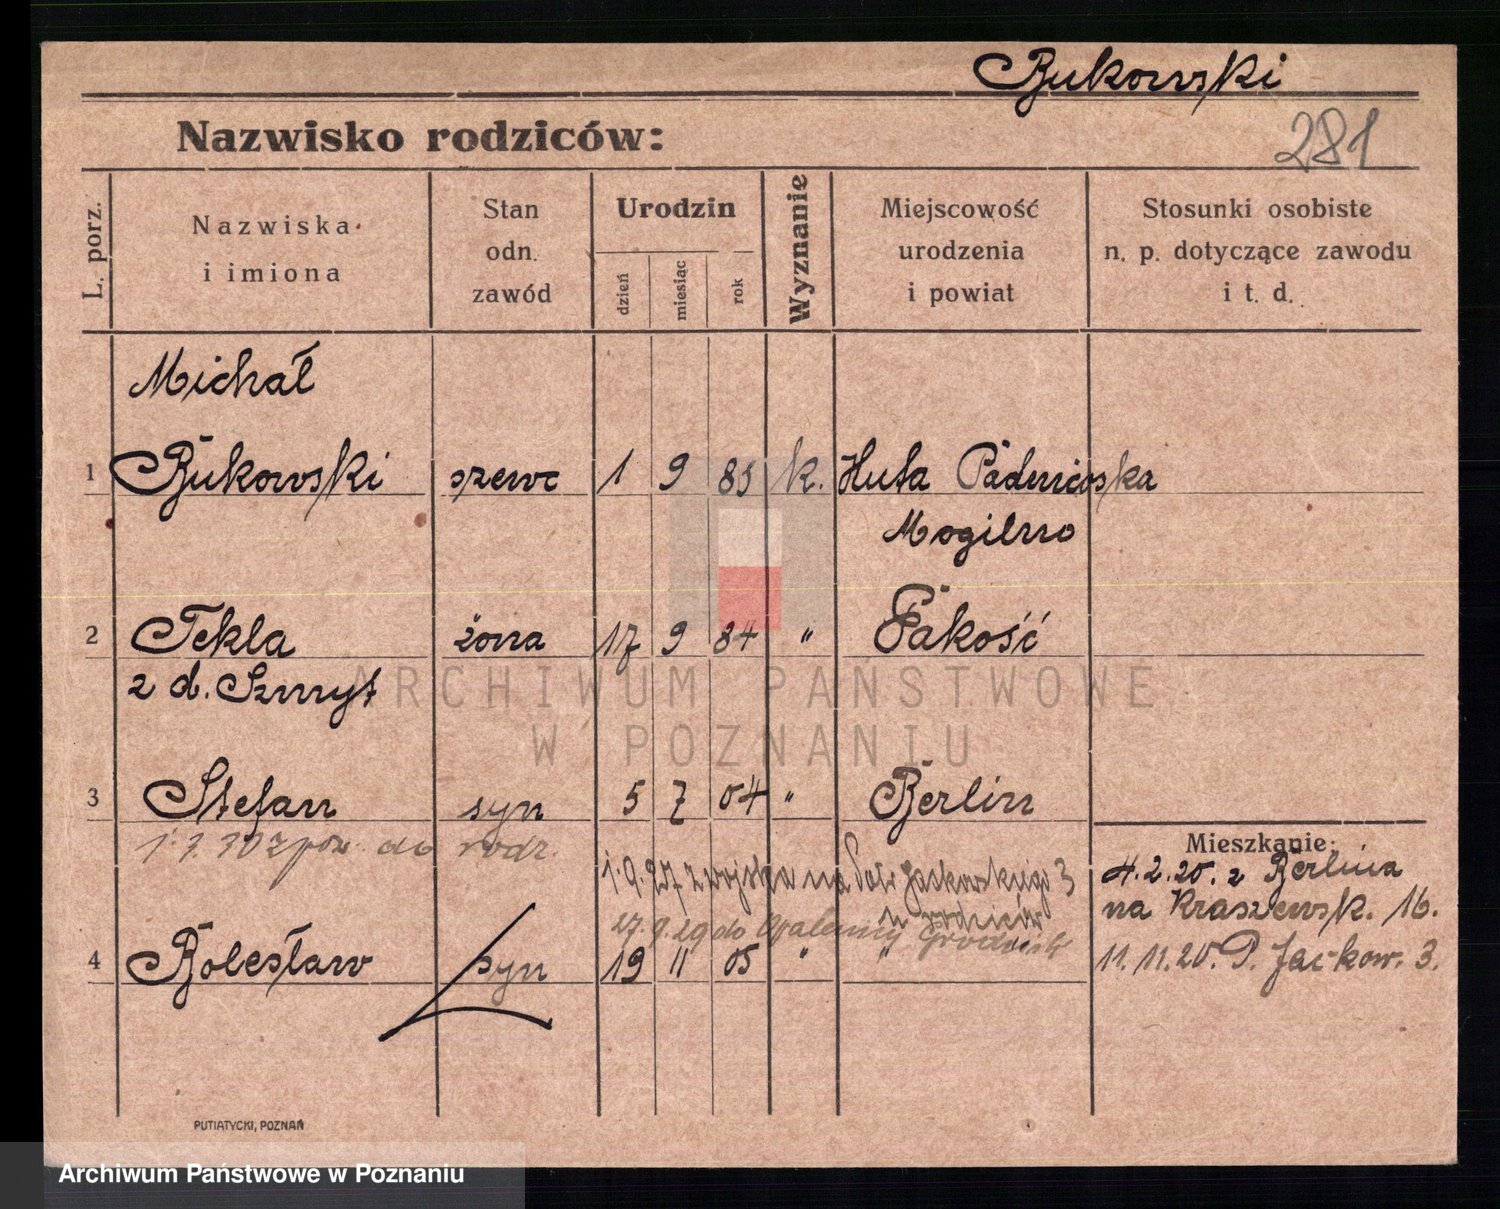 Bukowski
Nazwisko rodziców:
281
L. porz.
Nazwiska
i imiona
Stan
odn.
zawód
Urodzin
dzień
miesiąc
rok
Wyznanie
Miejscowość
urodzenia
i powiat
Stosunki osobiste
n. p. dotyczące zawodu
i t. d.
Michał
1 Bukowski szewc 1 9 85 k. Huta Padniewska
Mogilno
2 Tekla żona 17 9 84 " Pakość
z d. Szmyt
ARCHIWUM PAŃSTWOWE
W POZNANIU
3 Stefan syn 5 7 04 " Berlin
1.7.30 z pow. do rodz.
1.9.27 z wojska na Patr. Jackowskiego 3
u rodziców
27.9.29 do Opalenicy Grodzisk
4 Bolesław syn 19 11 05 " "
Mieszkanie:
4.2.20. z Berlina
na Kraszewsk. 16.
11.11.20. P. Jackow. 3.
PUTIATYCKI, POZNAŃ
Archiwum Państwowe w Poznaniu